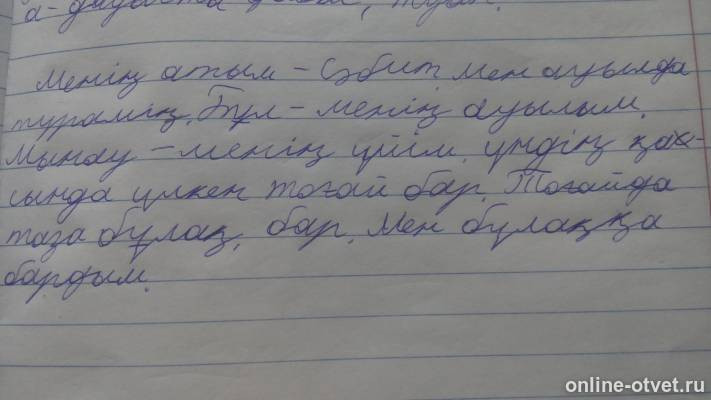 Менің атым – Сәбит мен ауылда
тұрамың. Бұл – менің ауылым.
Мынау – менің үйім. үйдің қа-
сында үлкен тоғай бар. Тоғайда
таза бұлақ, бар. Мен бұлаққа
бардым.
online-otvet.ru